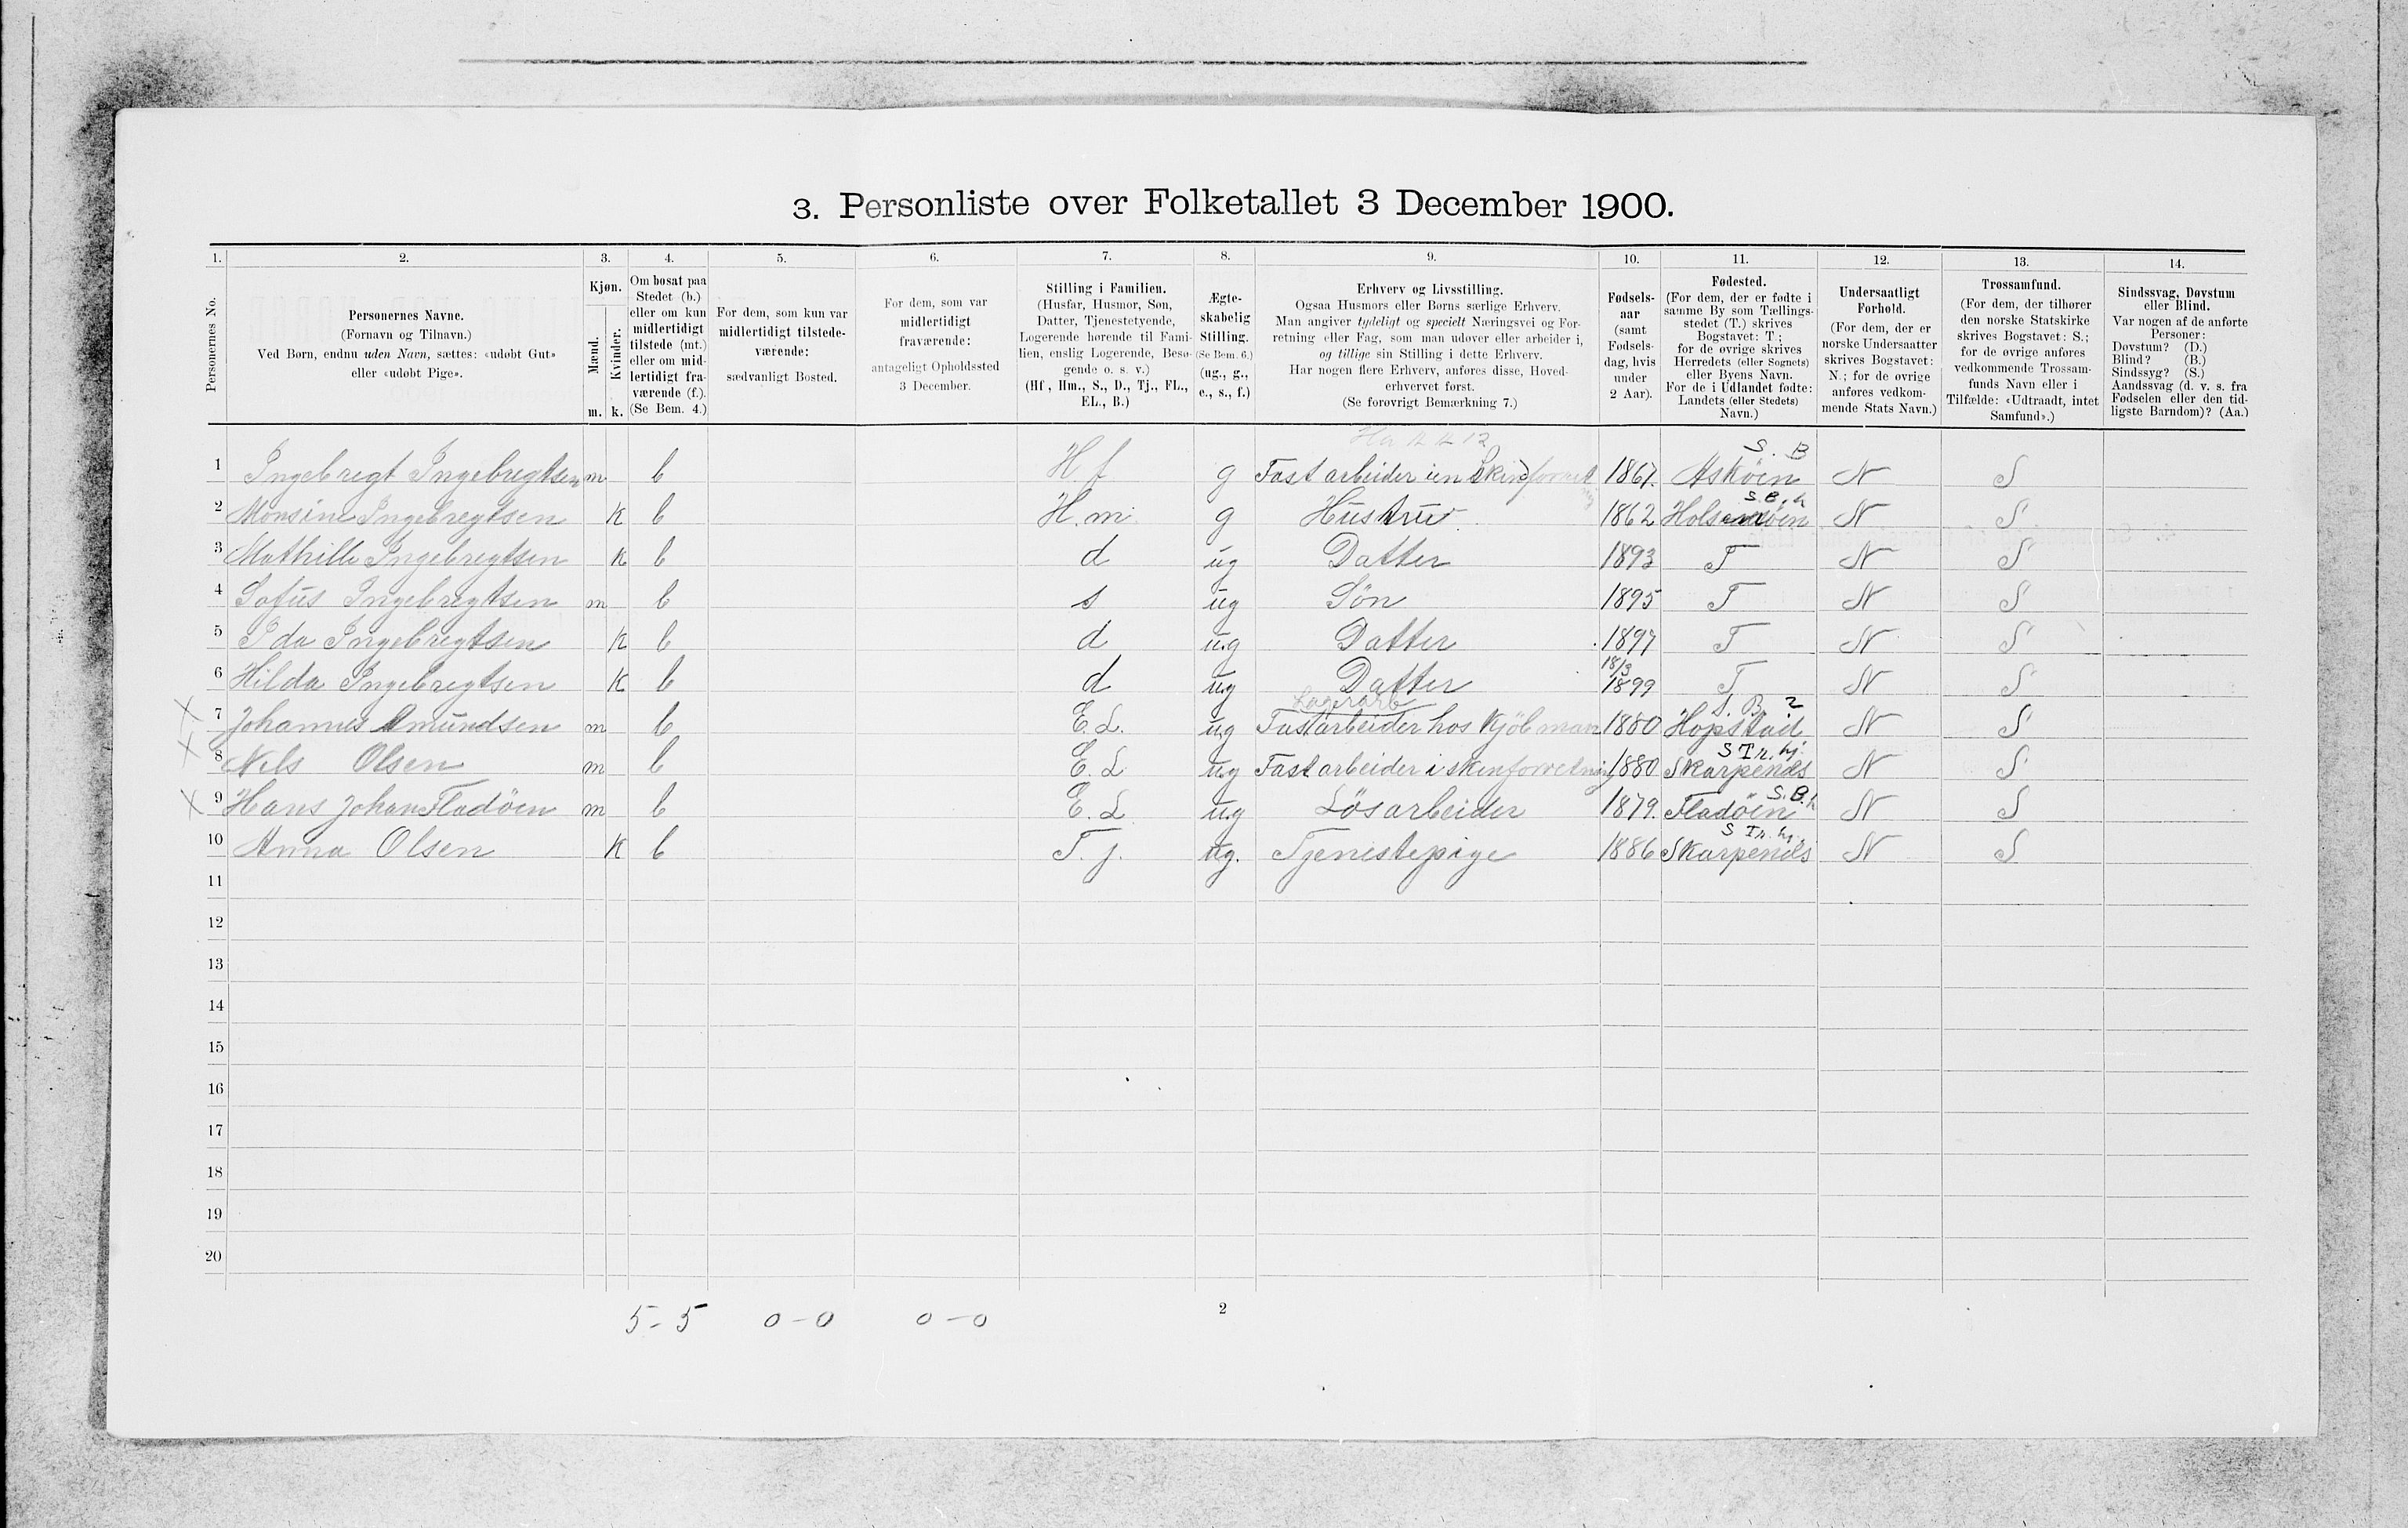 3. Personliste over Folketallet 3 December 1900.
1. 2. 3. 4. 5. 6. 7. 8. 9. 10. 11. 12. 13. 14.
Personernes No.
Personernes Navne.
(Fornavn og Tilnavn.)
Ved Børn, endnu uden Navn, sættes: «udøbt Gut»
eller «udøbt Pige».
Kjøn.
Mænd.
Kvinder.
m. k.
Om bosat paa
Stedet (b.)
eller om kun
midlertidigt
tilstede (mt.)
eller om mid-
lertidigt fra-
værende (f.).
(Se Bem. 4.)
For dem, som kun var
midlertidigt tilstede-
værende:
sædvanligt Bosted.
For dem, som var
midlertidigt
fraværende:
antageligt Opholdssted
3 December.
Stilling i Familien.
(Husfar, Husmor, Søn,
Datter, Tjenestetyende,
Logerende hørende til Fami-
lien, enslig Logerende, Besø-
gende o. s. v.)
(Hf., Hm., S., D., Tj., FL.,
EL., B.)
Ægte-
skabelig
Stilling.
(Se Bem. 6.)
(ug., g.,
e., s., f.)
Erhverv og Livsstilling.
Ogsaa Husmors eller Børns særlige Erhverv.
Man angiver tydeligt og specielt Næringsvei og For-
retning eller Fag, som man udøver eller arbeider i,
og tillige sin Stilling i dette Erhverv.
Har nogen flere Erhverv, anføres disse, Hoved-
erhvervet først.
(Se forøvrigt Bemærkning 7.)
Fødsels-
aar
(samt
Fødsels-
dag, hvis
under
2 Aar).
Fødested.
(For dem, der er fødte i
samme By som Tællings-
stedet (T.) skrives
Bogstavet: T.;
for de øvrige skrives
Herredets (eller Sognets)
eller Byens Navn.
For de i Udlandet fødte:
Landets (eller Stedets)
Navn.)
Undersaatligt
Forhold.
(For dem, der er
norske Undersaatter
skrives Bogstavet:
N.; for de øvrige
anføres vedkom-
mende Stats Navn.)
Trossamfund.
(For dem, der tilhører
den norske Statskirke
skrives Bogstavet: S.;
for de øvrige anføres
vedkommende Trossam-
funds Navn eller i
Tilfælde: «Udtraadt, intet
Samfund».)
Sindssvag, Døvstum
eller Blind.
Var nogen af de anførte
Personer:
Døvstum? (D.)
Blind? (B.)
Sindssyg? (S.)
Aandssvag (d. v. s. fra
Fødselen eller den tid-
ligste Barndom)? (Aa.)
S. B
1 Ingebregt Ingebregtsen m b H.f g Fast arbeider i en Skinforret 1867. Askøen N S
S. B. h
2 Monsine Ingebregtsen K b H.m. g Hustru 1862 N S
3 Mathilde Ingebregtsen K b d ug Datter 1893 T N S
4 Sofus Ingebregtsen m b s ug Søn 1895 T N S
5 Ida Ingebregtsen K b d ug Datter 1897 T N S
18/3
6 Hilda Ingebregtsen K b d ug Datter 1899 T N S
Lagerarb S. B. 2
X 7 Johannes Amundsen m b E.L. ug Fastarbeider hos Kjøbman 1880 Hopstad N S
S Tr. hj.
X 8 Nils Olsen m b E.L ug Fast arbeider i skinforretning 1880 Skarpenæs N S
S. B. h
X 9 Hans Johan Fladøen m b E.L ug Løsarbeider 1879. Fladøen N S
S Tr. hj.
10 Anna Olsen K b T.j. ug. Tjenestepige 1886 Skarpenæs N S
11
12
13
14
15
16
17
18
19
20
5 - 5 0 - 0 0 - 0 2